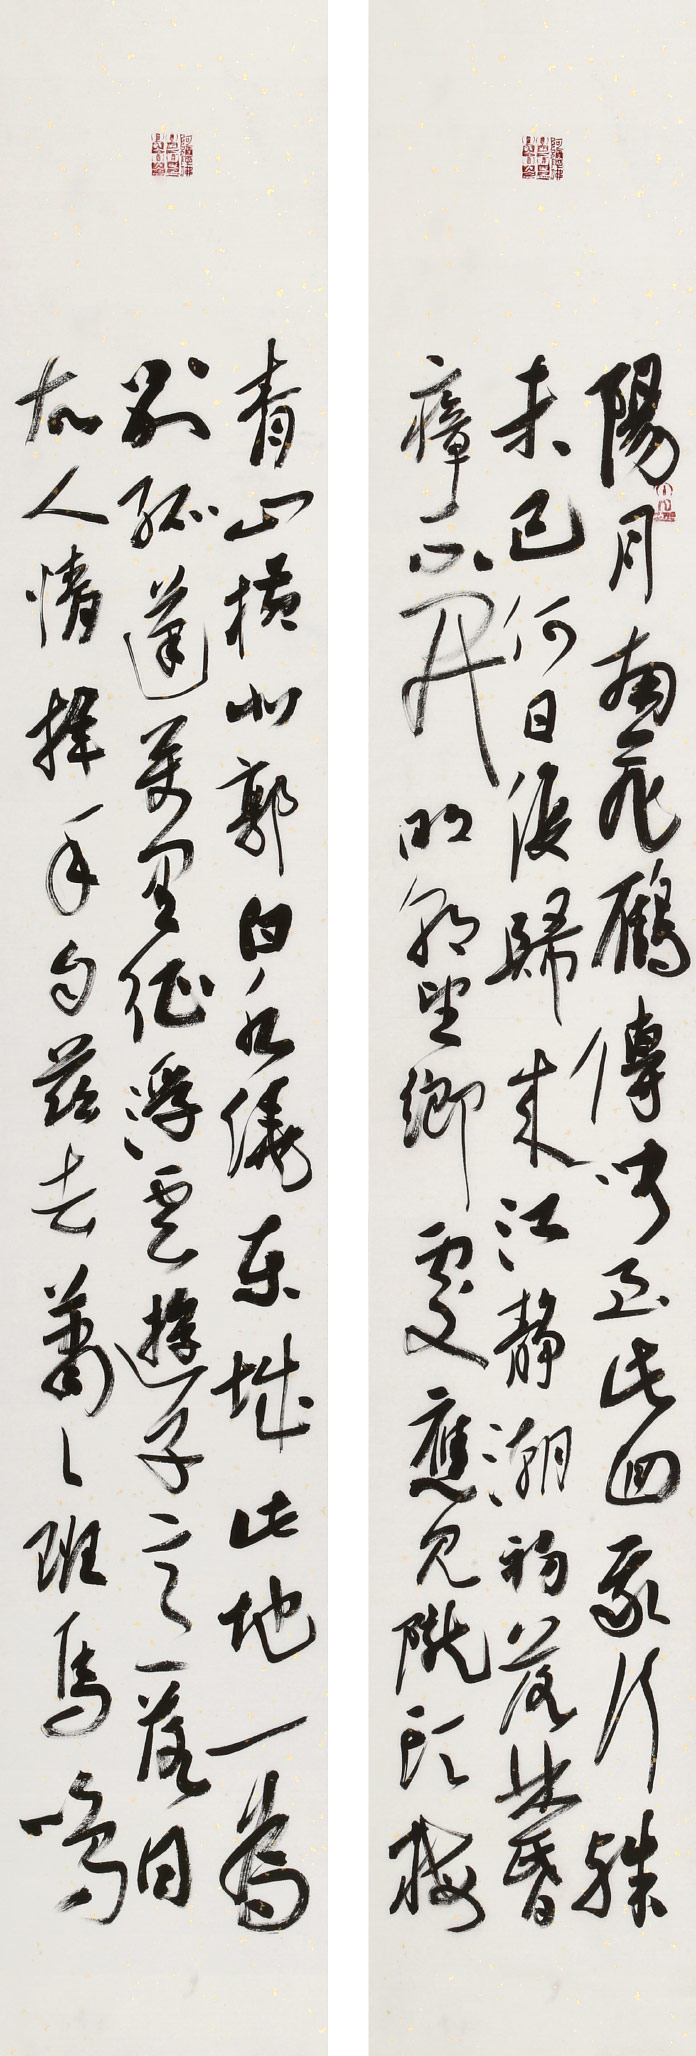 陽月南飛鴈傳聞至此回我行殊
未已何日復歸來江靜潮初落林昏
瘴不開明朝望鄉處應見隴頭梅
青山橫北郭白水繞東城此地一為
別孤蓬萬里征浮雲遊子意落日
故人情揮手自茲去蕭々班馬鳴